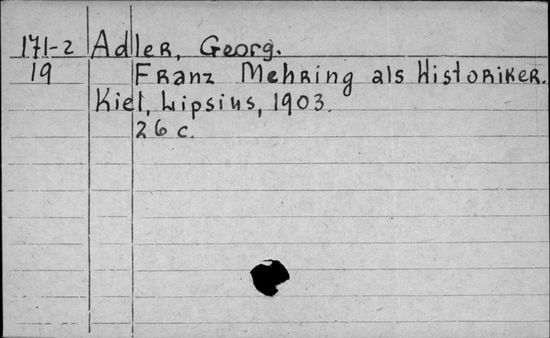 171-2 Adler, Georg.
19 Franz Mehring als Historiker.
Kiel, Lipsius, 1903.
26 c.